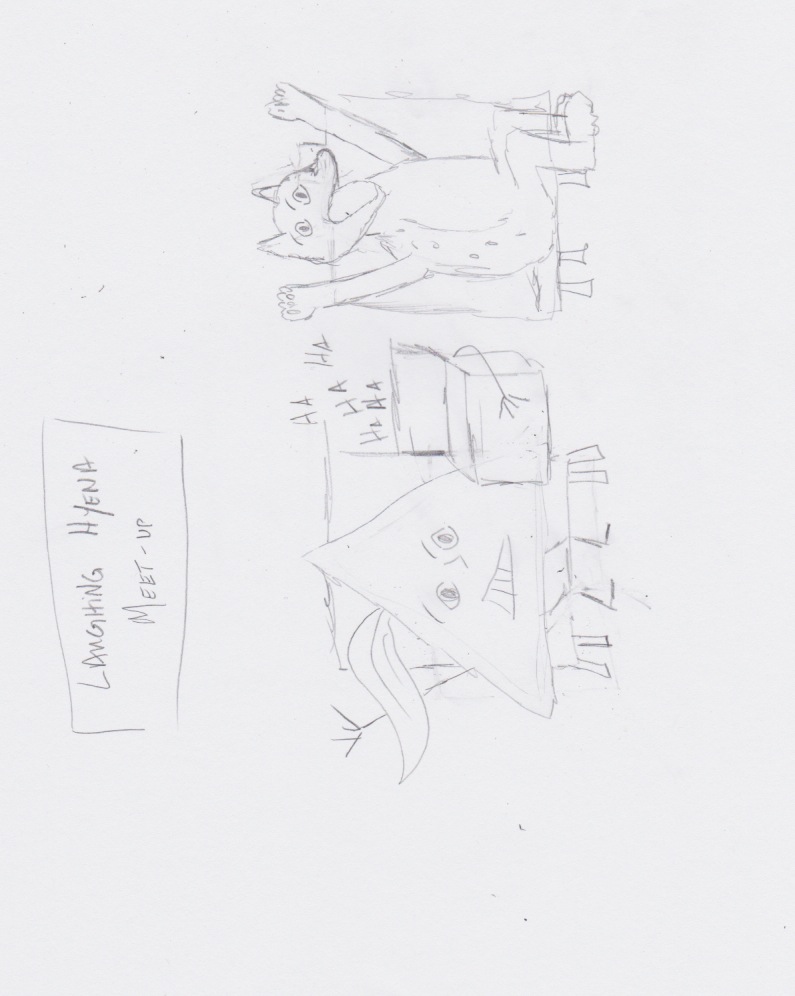 LAUGHING HYENA
MEET-UP
HA HA
HA
HA HA